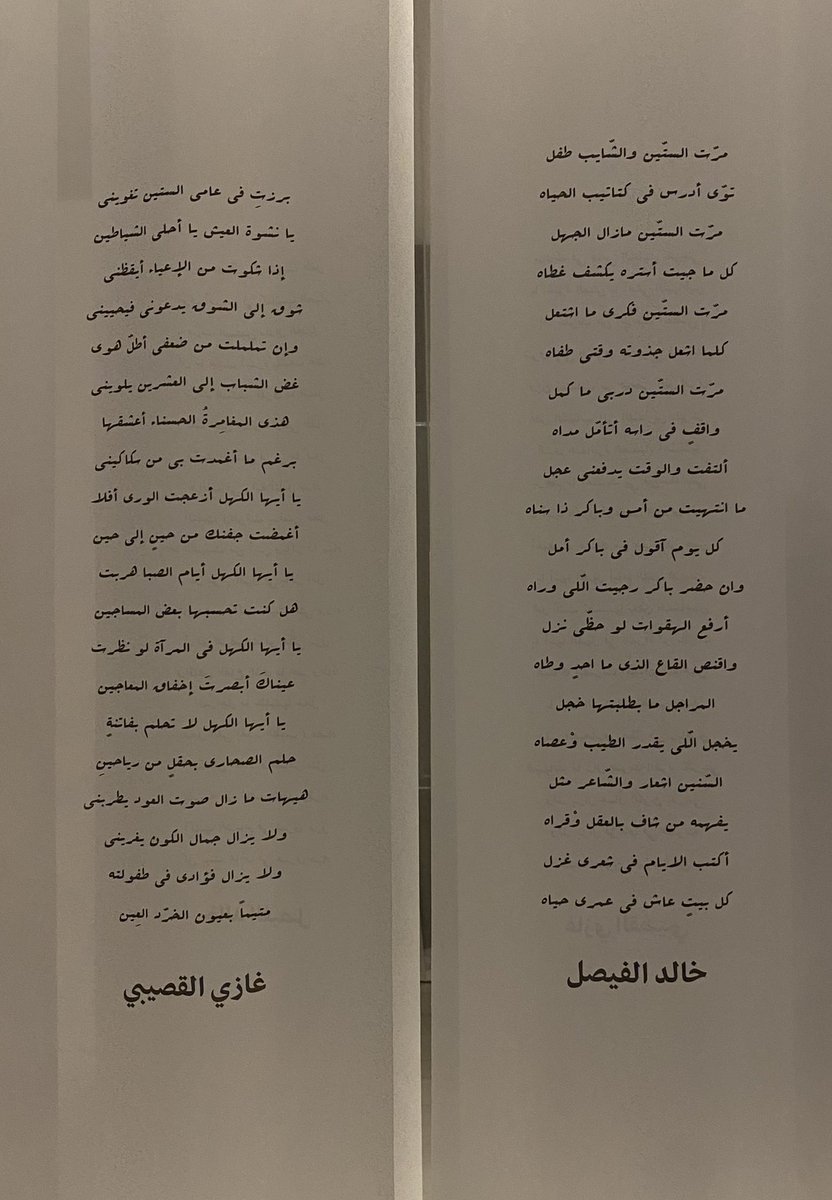 مرّت الستّين والشّايب طفل
توّى أدرس فى كتاتيب الحياه
مرّت الستّين مازال الجهل
كل ما جيت أستره يكشف غطاه
مرّت الستّين فكرى ما اشتعل
كلما اشعل جذوته وقتى طفاه
مرّت الستّين دربى ما كمل
واقفٍ فى راسه أتأمّل مداه
ألتفت والوقت يدفعنى عجل
ما انتهيت من أمس وباكر ذا سناه
كل يوم آقول فى باكر أمل
وان حضر باكر رجيت الّلى وراه
أرفع الهقوات لو حظّى نزل
واقنص القاع الذى ما احدٍ وطاه
المراجل ما بطلبتها خجل
يخجل الّلى يقدر الطيب وْعصاه
السّنين اشعار والشّاعر مثل
يفهمه من شاف بالعقل وْقراه
أكتب الايام فى شعرى غزل
كل بيتٍ عاش فى عمرى حياه
خالد الفيصل
برزتِ فى عامى الستين تغوينى
يا نشوة العيش يا أحلى الشياطين
إذا شكوت من الإعياء أيقظنى
شوق إلى الشوق يدعونى فيحيينى
وإن تململت من ضعفى أطلّ هوى
غض الشباب إلى العشرين يلوينى
هذى المغامِرةُ الحسناء أعشقها
برغم ما أغمدت بى من سكاكينى
يا أيها الكهل أزعجت الورى أفلا
أغمضت جفنك من حينٍ إلى حين
يا أيها الكهل أيام الصبا هربت
هل كنت تحسبها بعض المساجين
يا أيها الكهل فى المرآة لو نظرت
عيناكَ أبصرتَ إخفاق المعاجين
يا أيها الكهل لا تحلم بفاتنةٍ
حلم الصحارى بحقلٍ من رياحينِ
هيهات ما زال صوت العود يطربنى
ولا يزال جمال الكون يغرينى
ولا يزال فؤادى فى طفولته
متيماّ بعيون الخرّد العِين
غازي القصيبي